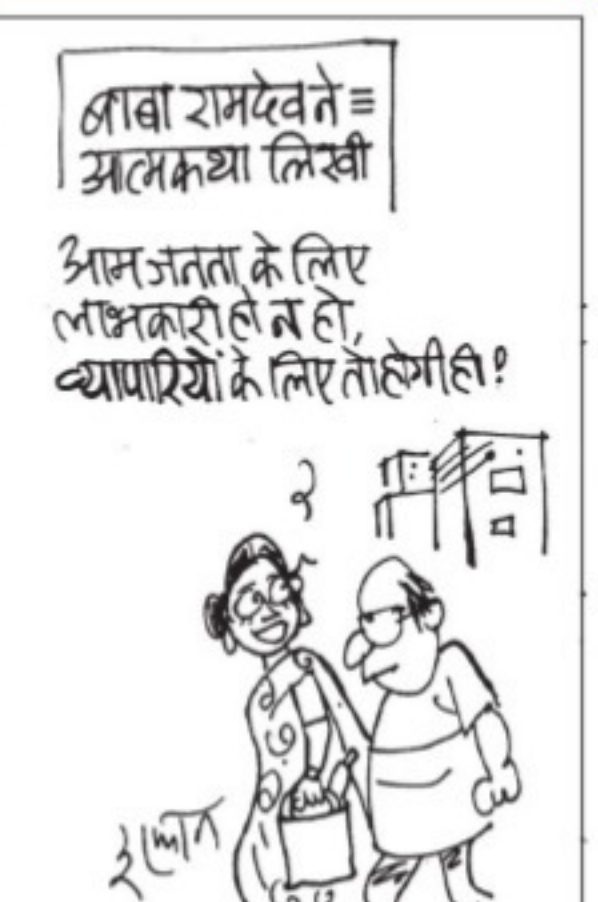 बाबा रामदेव ने
आत्मकथा लिखी
आम जनता के लिए
लाभकारी हो न हो,
व्यापारियों के लिए तो होगी ही!